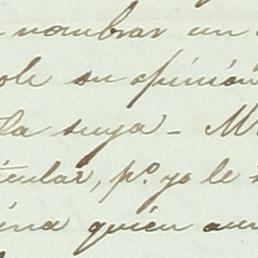 nombrar un
ole su opinion
la suya - M
icular, p.º yo le
ina quien aun